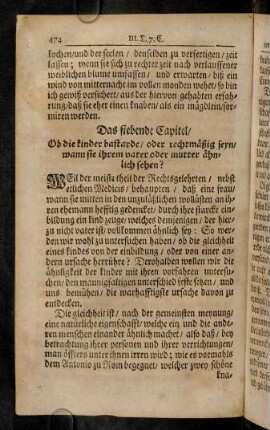 474 III. T. 7. C.
kochen/ und der seelen / denselben zu verfertigen/ zeit
lassen; wenn sie sich zu rechter zeit nach verlauffener
weiblichen blume umfassen / und erwarten / biß ein
wind von mitternacht im vollen monden wehet/ so bin
ich gewiß versichert/ aus der hiervon gehabten erfah-
rung/ daß sie eher einen knaben/ als ein mägdlein/ for-
miren werden.
Das siebende Capitel/
Ob die kinder bastarde/ oder rechtmäßig seyn/
wann sie ihrem vater oder mutter ähn-
lich sehen?
WEil der meiste theil der Rechtsgelehrten / nebst
etlichen Medicis / behaupten / daß eine frau/
wann sie mitten in den unzuläßlichen wollüsten an ih-
ren ehemann hefftig gedencket/ durch ihre starcke ein-
bildung ein kind zeuge/ welches demjenigen / der hier-
zu nicht vater ist/ vollkommen ähnlich sey: So wer-
den wir wohl zu untersuchen haben/ ob die gleichheit
eines kindes von der einbildung/ oder von einer an-
dern ursache herrühre? Derohalben wollen wir die
ähnligkeit der kinder mit ihren vorfahren untersu-
chen/ den mannigfaltigen unterschied feste sehen / und
uns bemühen/ die warhafftigste ursache davon zu
entdecken.
Die gleichheit ist/ nach der gemeinsten meynung/
eine natürliche eigenschafft/ welche eix und die ande-
ren menschen einander ähnlich machet/ also daß/ bey
betrachtung ihrer personen und ihrer verrichtungen/
man öffters unter ihnen irren wird; wie es vormahls
dem Antonio zu Rom begegnet/ welcher zwey schöne
kna-